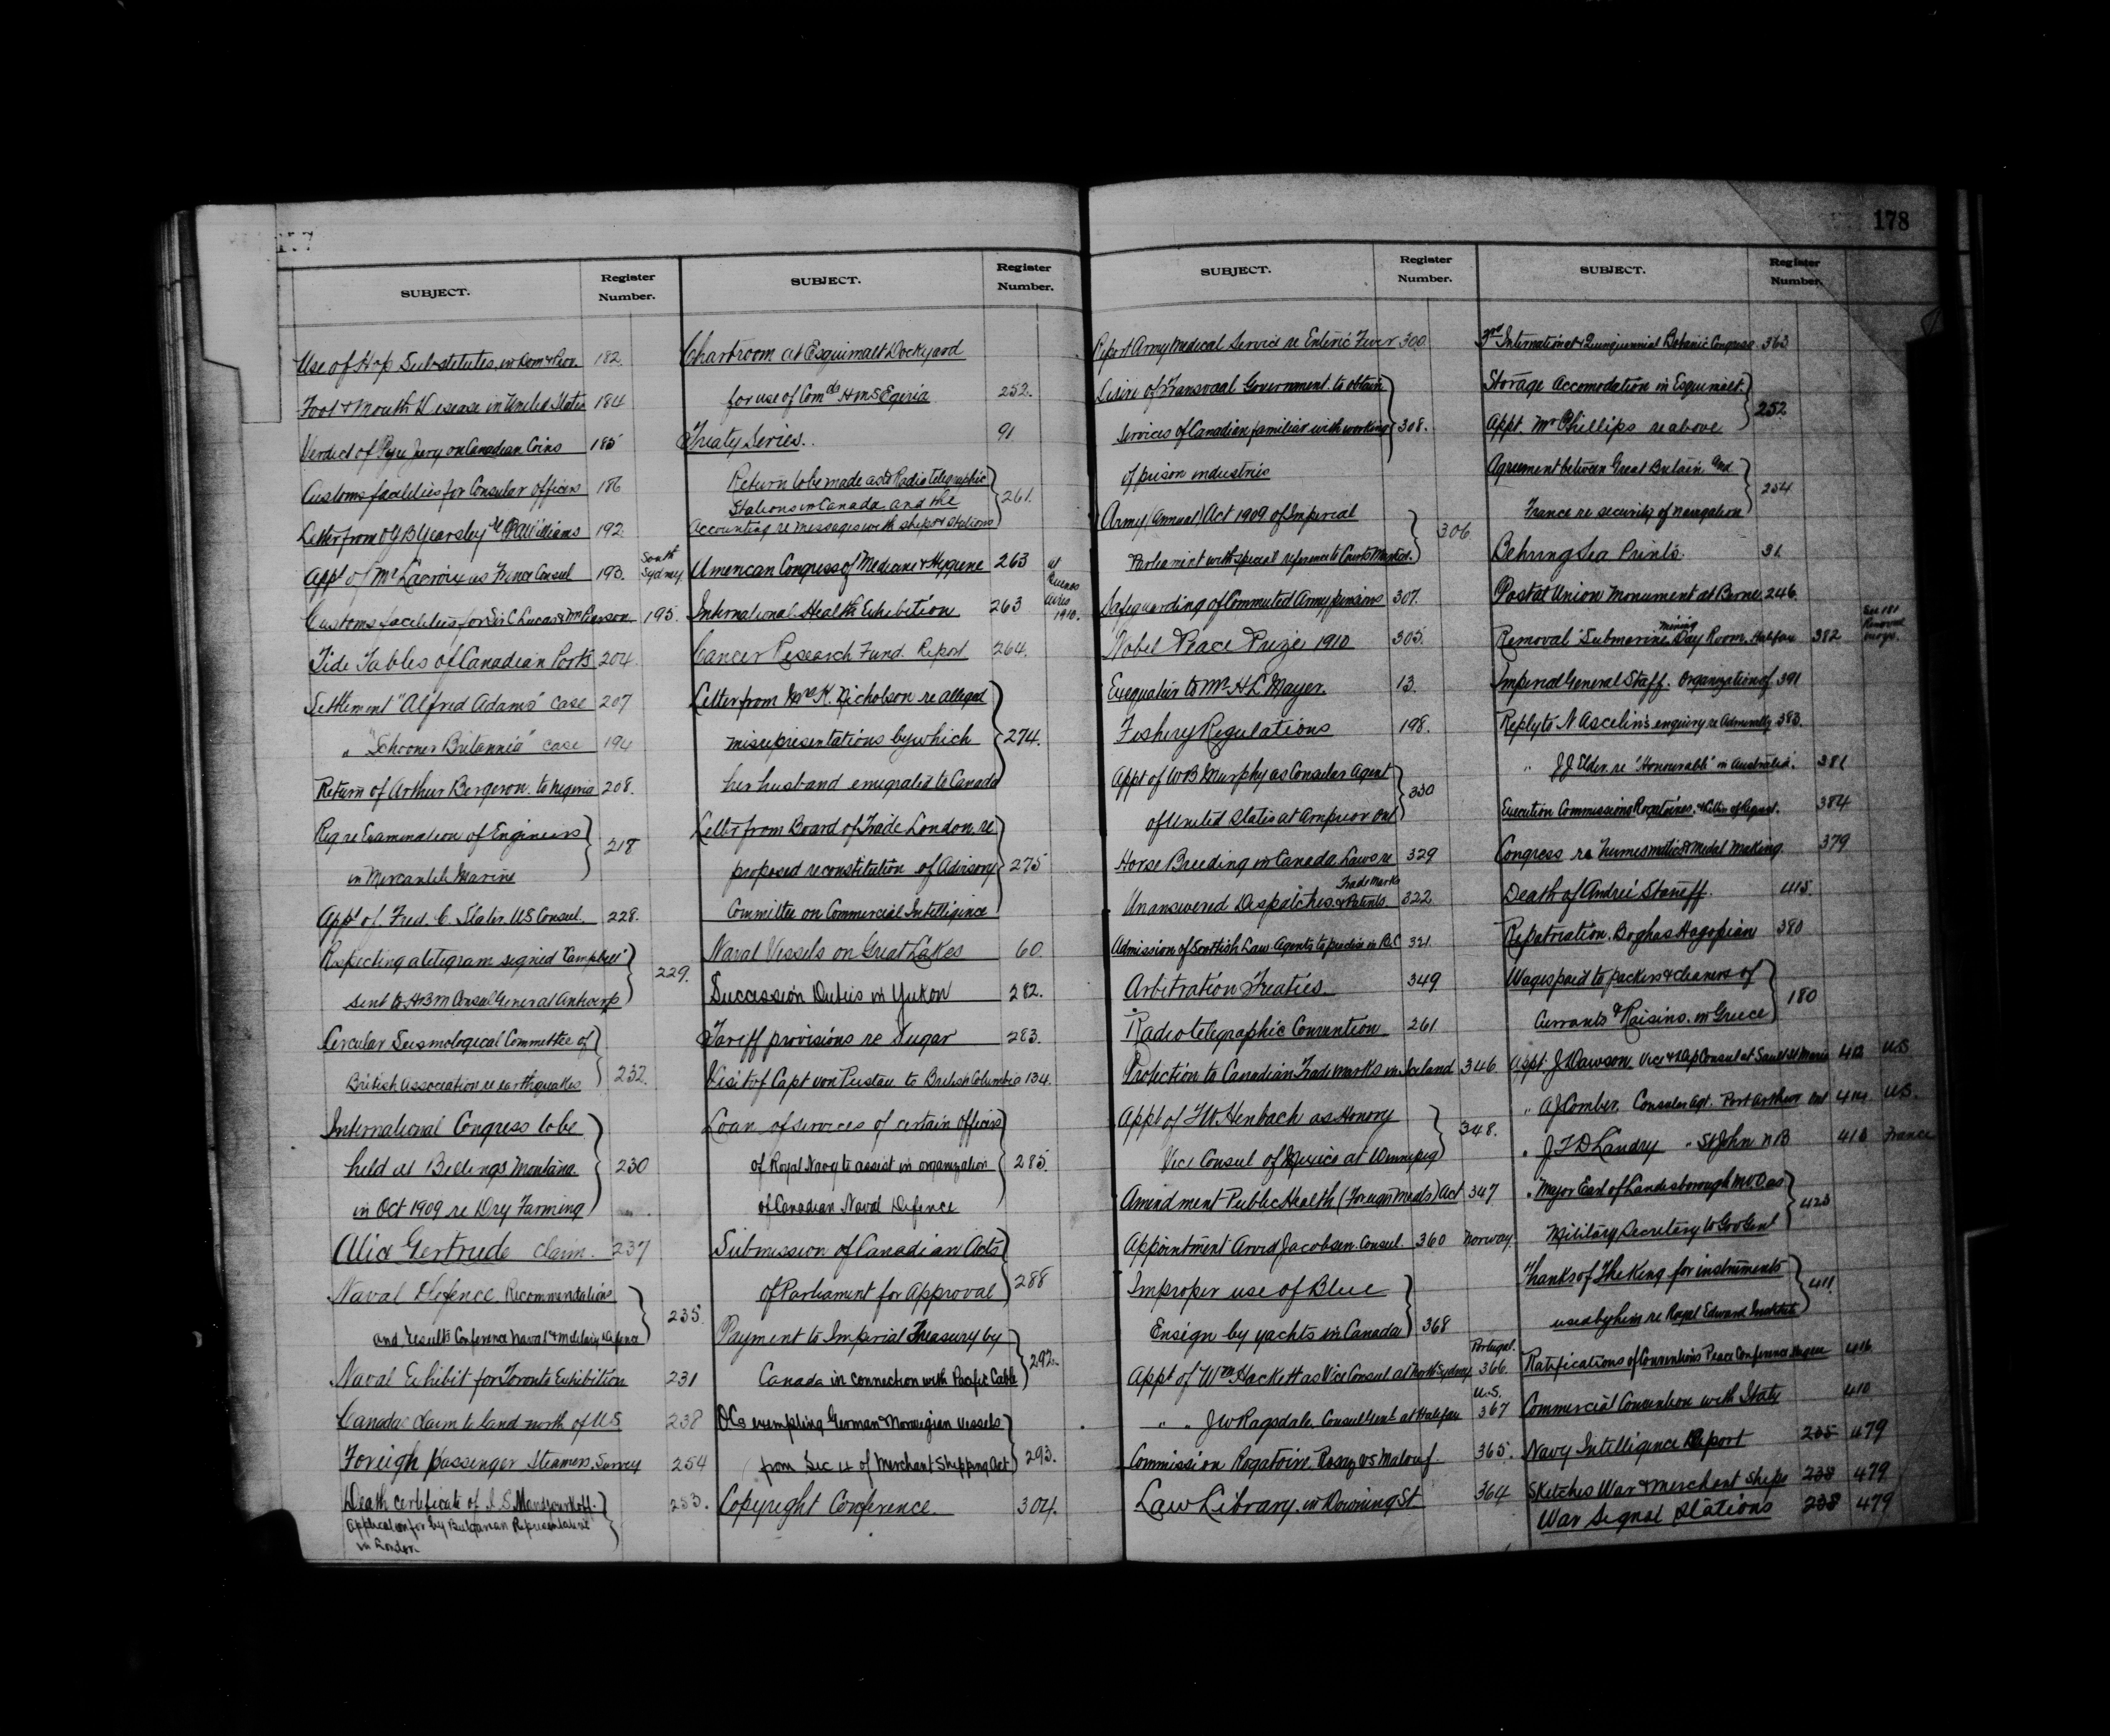 178
SUBJECT. Register Number.
Use of Hop Substitutes, in 182.
Foot & Mouth Disease in United States 184
Verdict of Pyx Jury on Canadian Coins 185
Customs facilities for Consular Officers 186
Letter from Yearsley Williams 192.
Appt of Mr Lacroix as France Consul 193. South Sydney
Customs facilities for Sir C Lucas & Mr Pearson 195.
Tide Tables of Canadian Ports 204.
Settlement "Alfred Adams" case 207
" "Schooner Britannia" case 194
Return of Arthur Bergeron. to Nigeria 208.
Reg re Examination of Engineers
in Mercantile Marine 218
Appt of. Fred. C. Slater US Consul. 228.
Respecting a telegram signed "Campbell"
sent to HBM Consul General Antwerp 229.
Circular Seismological Committee of
British Association re earthquakes 232.
International Congress to be
held at Billings Montana 230
in Oct 1909 re Dry Farming
Alice Gertrude claim. 237
Naval Defence. Recommendations
and results Conference Naval & Military Defence 235.
Naval Exhibit for Toronto Exhibition 231
Canadas claim to land north of US 238
Foreign passenger Steamers, Survey 254
Death certificate of 253.
Application for by Bulgarian Representative
in London.
SUBJECT. Register Number.
Chartroom at Esquimalt Dockyard
for use of Comdr HMS Egeria 252.
Treaty Series.. 91
Return to be made as to Radiotelegraphic
Stations in Canada and the 261.
Accounting re messages with ships & stations
American Congress of Medicine & Hygiene 263 at Buenos Aires 1910.
International Health Exhibition 263
Cancer Research Fund. Report 264.
Letter from Mrs K. Nicholson re alleged
misrepresentations by which 274.
her husband emigrated to Canada
Letter from Board of Trade London, re
proposed reconstitution of Advisory 275
Committee on Commercial Intelligence
Naval Vessels on Great Lakes 60.
Succession Duties in Yukon 282.
Tariff provisions re Sugar 283.
Visit of Capt von Pustau to British Columbia 134.
Loan of services of certain Officers
of Royal Navy to assist in organization 285.
of Canadian Naval Defence
Submission of Canadian Acts
of Parliament for Approval 288
Payment to Imperial Treasury by
Canada in connection with Pacific Cable 292.
OCs exempting German & Norwegian vessels
from Sec 14 of Merchant Shipping Act 293.
Copyright Conference. 304.
SUBJECT. Register Number.
Report Army Medical Service re Enteric Fever 300.
Desire of Transvaal Government to obtain
services of Canadian familiar with working 308.
of prison industries
Army (Annual) Act 1909 of Imperial
Parliament with special reference to Courts Martial. 306
Safeguarding of Commuted Army Pensions 307.
Nobel Peace Prize 1910 305.
Exequatur to Mr H L Mayer. 13.
Fishery Regulations 198.
Appt of WB Murphy as Consular Agent
of United States at Arnprior Ont 330
Horse Breeding in Canada, Laws re 329
Unanswered Despatches Trade Marks & Patents. 322
Admission of Scottish Law Agents to practise in B.C 321.
Arbitration Treaties. 349
Radiotelegraphic Convention 261
Protection to Canadian Trade marks in Iceland 346
Appt of F.W. Henbach as Honory
Vice Consul of Mexico at Winnipeg 348.
Amendment Public Health (Foreign Meats) Act 347
Appointment Arvid Jacobsen Consul. 360 Norway.
Improper use of Blue
Ensign by yachts in Canada 368
Appt of Wm Hackett as Vice Consul at North Sydney 366. Portugal.
" " J W Ragsdale, Consul at Halifax 367 U.S.
Commission Rogatoire vs Malouf 365.
Law Library. in Downing St 364
SUBJECT. Register Number.
3rd International Quinquennial Botanic Congress. 363
Storage Accomodation in Esquimalt
Appt. Mr Phillips re above 252
Agreement between Great Britain and
France re security of navigation 254
Behring Sea Prints. 31.
Postal Union Monument at Berne 246.
Removal Submarine mining Day Room. Halifax 382
Imperial General Staff. Organization of 391
Reply to N Ascelin's enquiry re Admiralty 383.
" J J Elder. re "Honourable" in Australia. 381
Execution Commissions Rogatoires. & Letters of Request. 384
Congress re Numismatics & Medal Making. 379
Death of Andrei Staneff. 415.
Repatriation. Boghas Hagopian 380
Wages paid to packers & cleaners of
Currants & Raisins. in Greece 180
Appt. J Dawson Vice & Dep Consul at Sault St Marie 412 U.S
" AJ Comber, Consular Agt. Port Arthur Ont 414 U.S.
" J T D Landry " St John N B 413 France
" Major Earl of Londesborough MVO as
Military Secretary to Gov Genl 423
Thanks of The King for instruments
used by him re Royal Edward Institute 411.
Ratifications of Conventions Peace Conference Hague 416
Commercial Convention with Italy 410
Navy Intelligence Report 235 479
Sketches War & Merchant ships 238 479
War Signal Stations 238 479